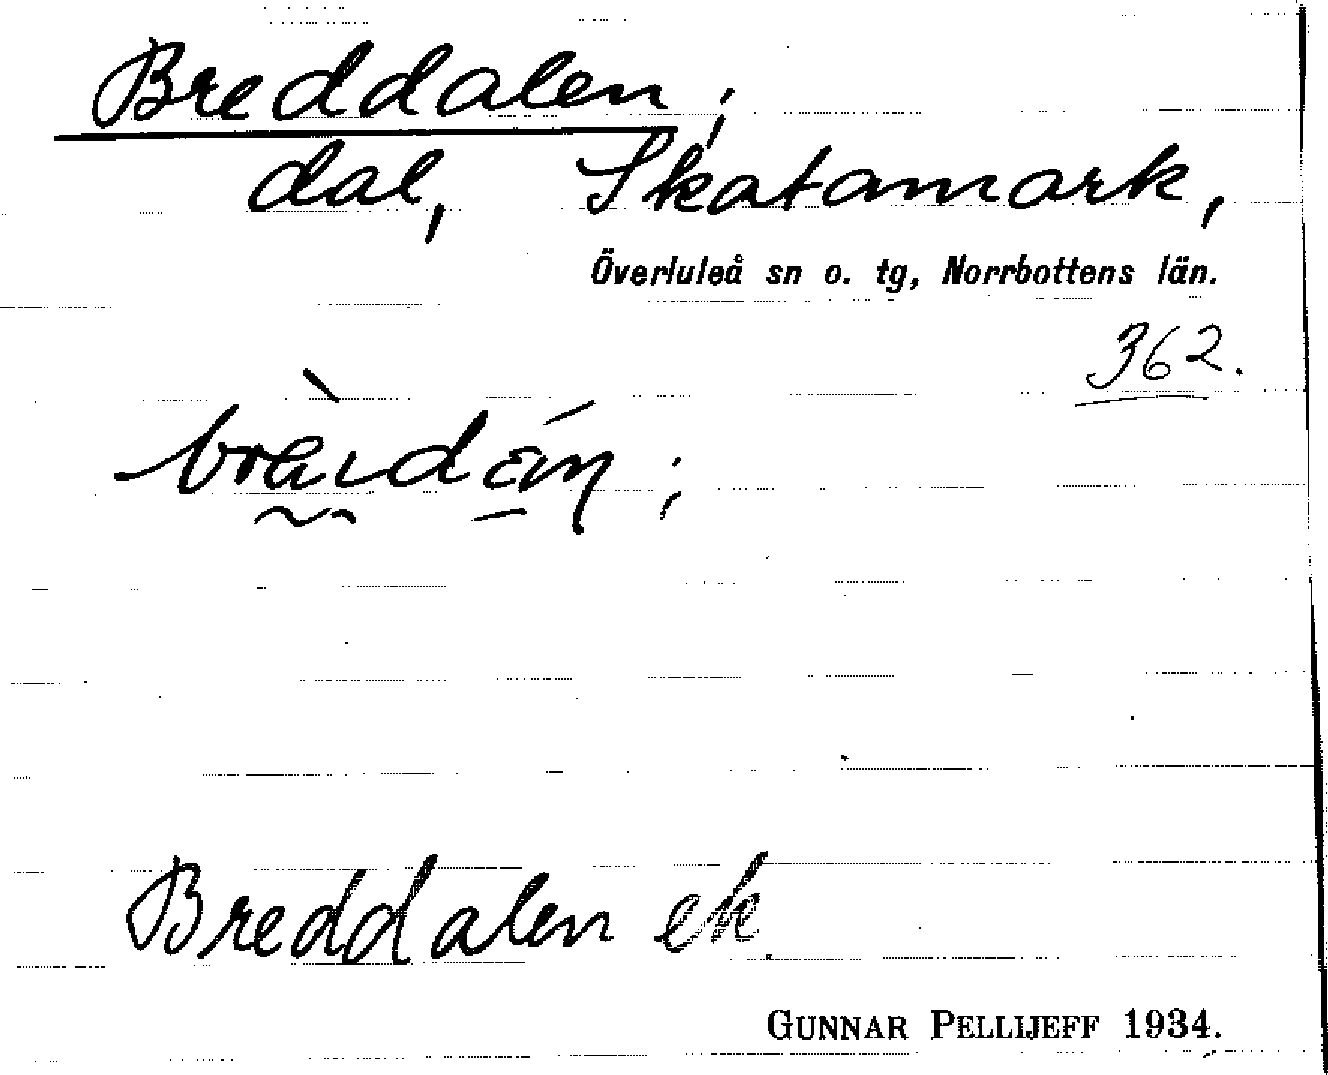 Breddalen;
dal, Skatamark,
Överluleå sn o. tg, Norrbottens län.
362.
Breddalen ek.
GUNNAR PELLIJEFF 1934.